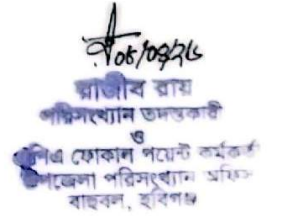 ০৮/০3/২৬
রাজীব রায়
পরিসংখ্যান তদন্তকারী
ও
পিএ ফোকাল পয়েন্ট কর্মকর্তা
উপজেলা পরিসংখ্যান অফিস
বাহুবল, হবিগঞ্জ